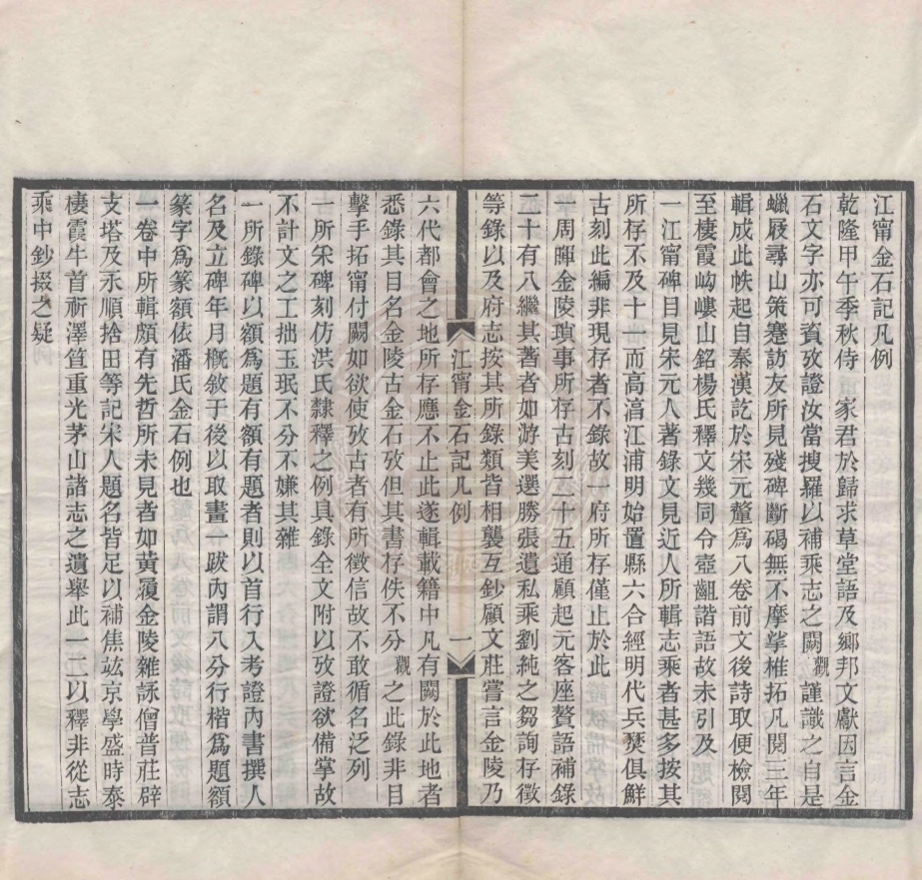 江甯金石記凡例
乾隆甲午季秋侍　家君於歸求草堂語及鄉邦文獻因言金
石文字亦可資攷證汝當搜羅以補乘志之闕觀謹識之自是
蠟屐尋山策蹇訪友所見殘碑斷碣無不摩挲椎拓凡閱三年
輯成此帙起自秦漢訖於宋元釐爲八卷前文後詩取便檢閱
至棲霞岣嶁山銘楊氏釋文幾同令壺齟諧語故未引及
一江甯碑目見宋元人著錄文見近人所輯志乘者甚多按其
所存不及十一而高淳江浦明始置縣六合經明代兵燹俱鮮
古刻此編非現存者不錄故一府所存僅止於此
一周暉金陵瑣事所存古刻二十五通顧起元客座贅語補錄
二十有八繼其著者如游美選勝張遺私乘劉純之芻詢存徵
等錄以及府志按其所錄類皆相襲互鈔顧文莊嘗言金陵乃
江甯金石記凡例　一
六代都會之地所存應不止此遂輯載籍中凡有關於此地者
悉錄其目名金陵古金石攷但其書存佚不分觀之此錄非目
擊手拓甯付闕如欲使攷古者有所徵信故不敢循名泛列
一所采碑刻仿洪氏隸釋之例具錄全文附以攷證欲備掌故
不計文之工拙玉珉不分不嫌其雜
一所錄碑以額爲題有額有題者則以首行入考證內書撰人
名及立碑年月概敘于後以取畫一跋內謂八分行楷爲題額
篆字爲篆額依潘氏金石例也
一卷中所輯頗有先哲所未見者如黃履金陵雜詠僧普莊辟
支塔及永順捨田等記宋人題名皆足以補焦竑京學盛時泰
棲霞牛首祈澤笪重光茅山諸志之遺舉此一二以釋非從志
乘中鈔掇之疑